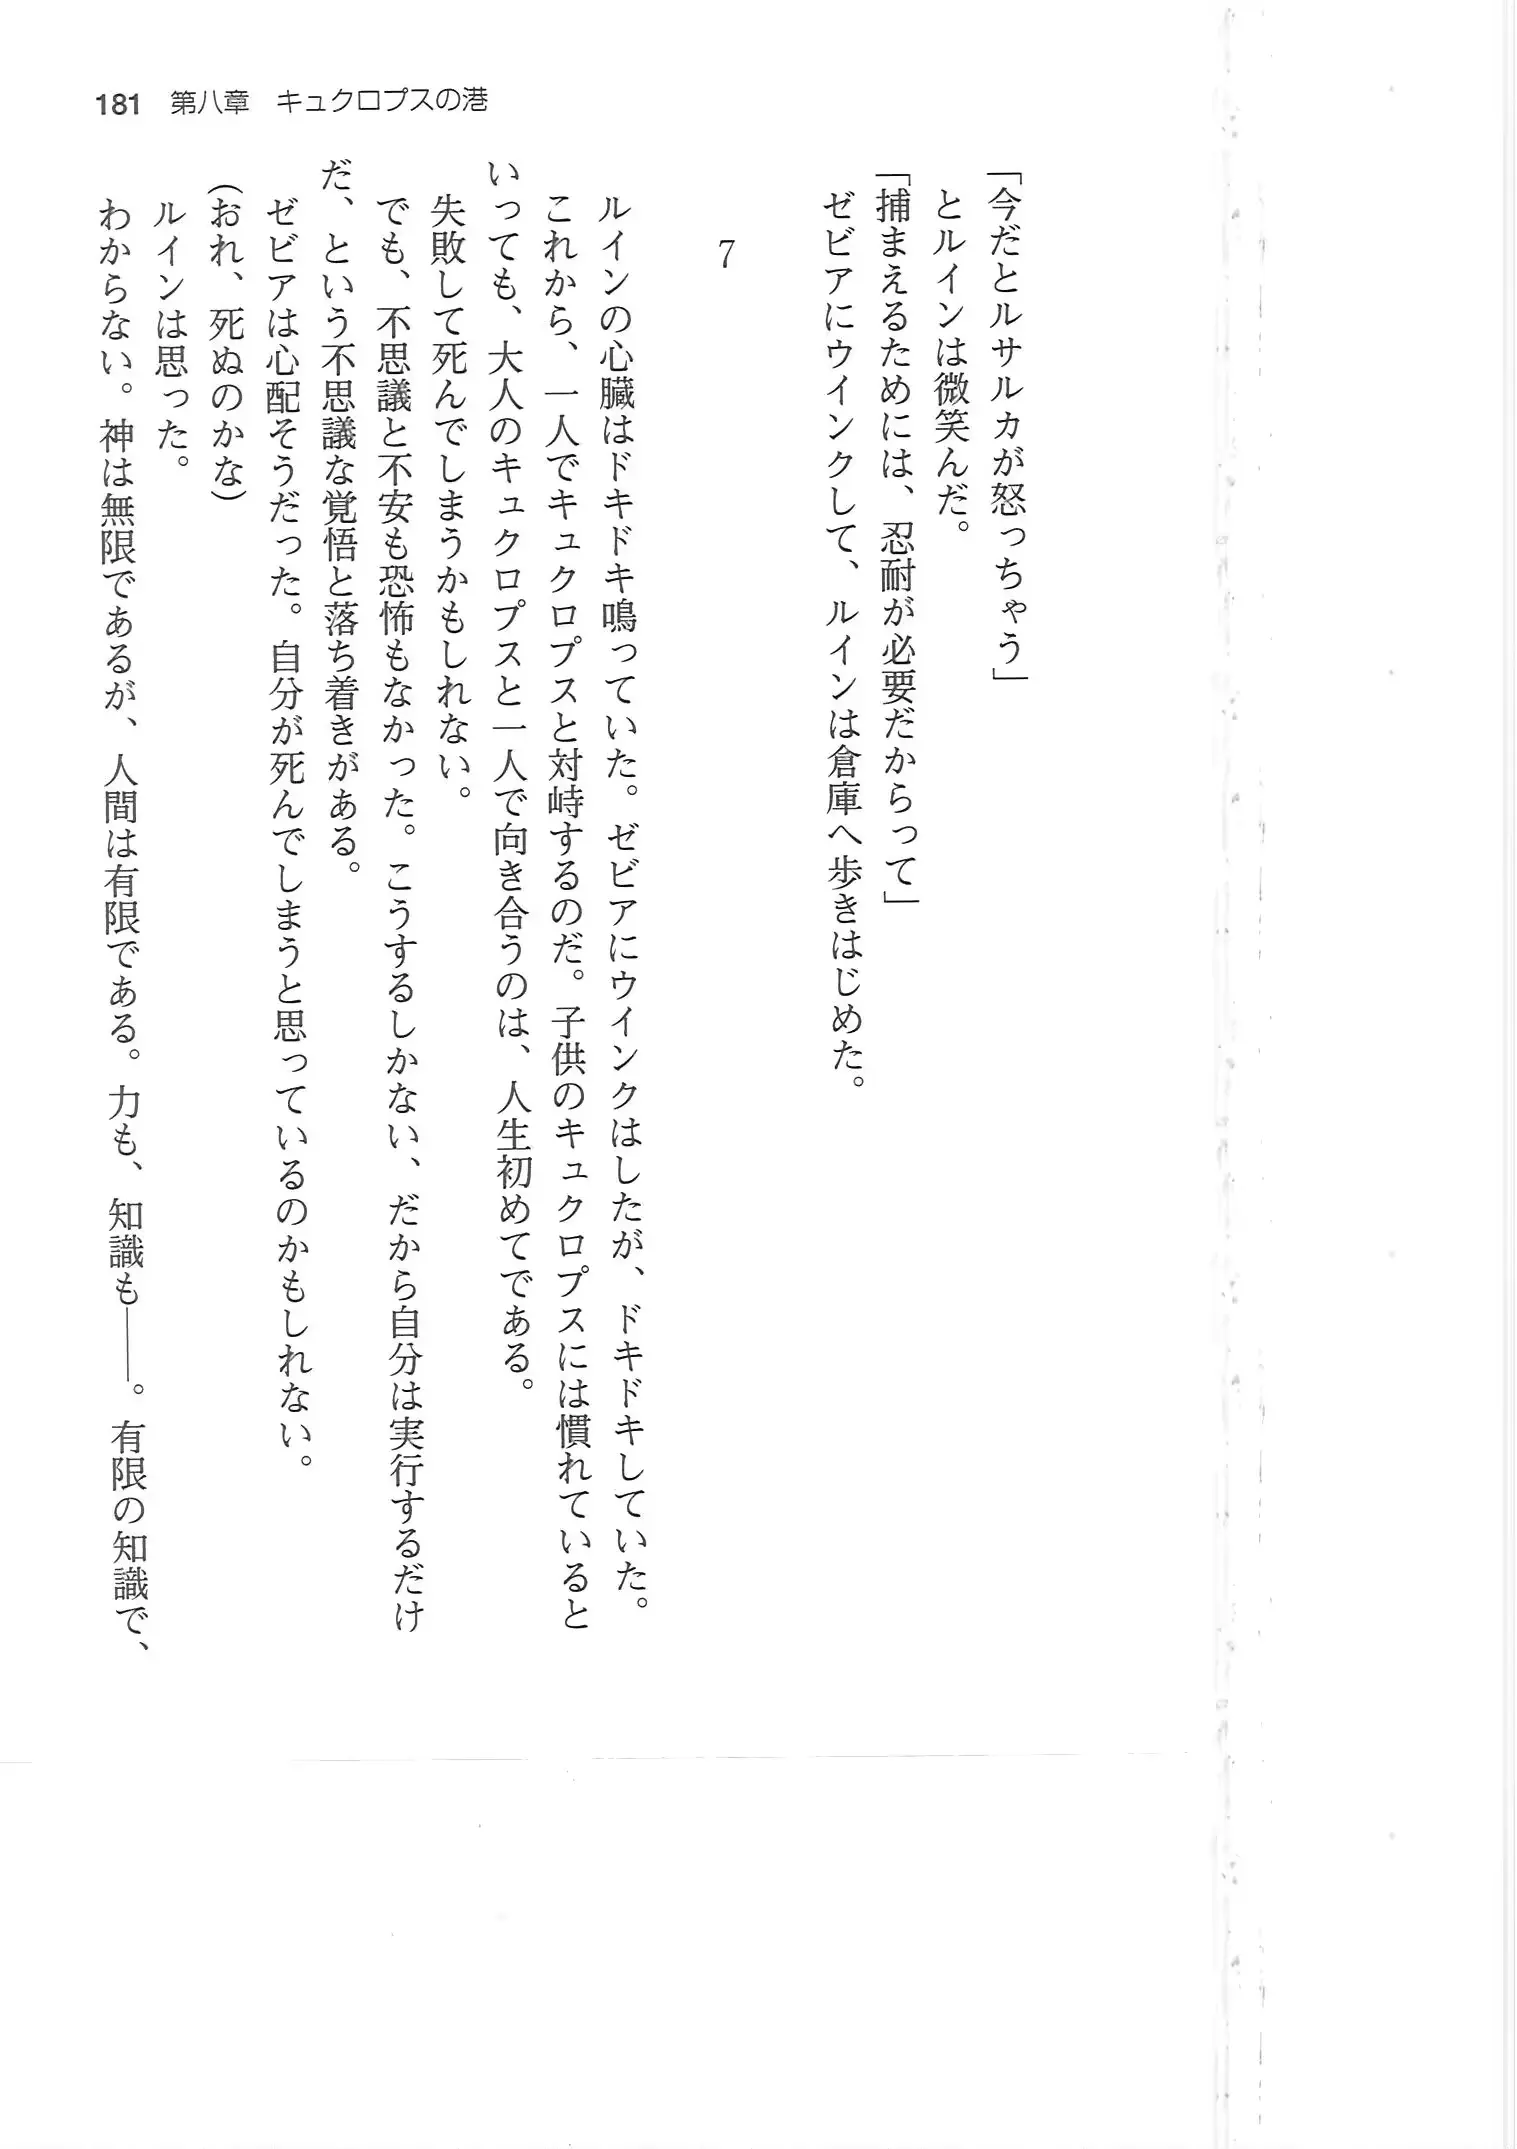 181 第八章 キュクロプスの港
「今だとルサルカが怒っちゃう」
とルインは微笑んだ。
「捕まえるためには、忍耐が必要だからって」
ゼビアにウインクして、ルインは倉庫へ歩きはじめた。
7
ルインの心臓はドキドキ鳴っていた。ゼビアにウインクはしたが、ドキドキしていた。
これから、一人でキュクロプスと対峙するのだ。子供のキュクロプスには慣れていると
いっても、大人のキュクロプスと一人で向き合うのは、人生初めてである。
失敗して死んでしまうかもしれない。
でも、不思議と不安も恐怖もなかった。こうするしかない、だから自分は実行するだけ
だ、という不思議な覚悟と落ち着きがある。
ゼビアは心配そうだった。自分が死んでしまうと思っているのかもしれない。
(おれ、死ぬのかな)
ルインは思った。
わからない。神は無限であるが、人間は有限である。力も、知識も――。有限の知識で、